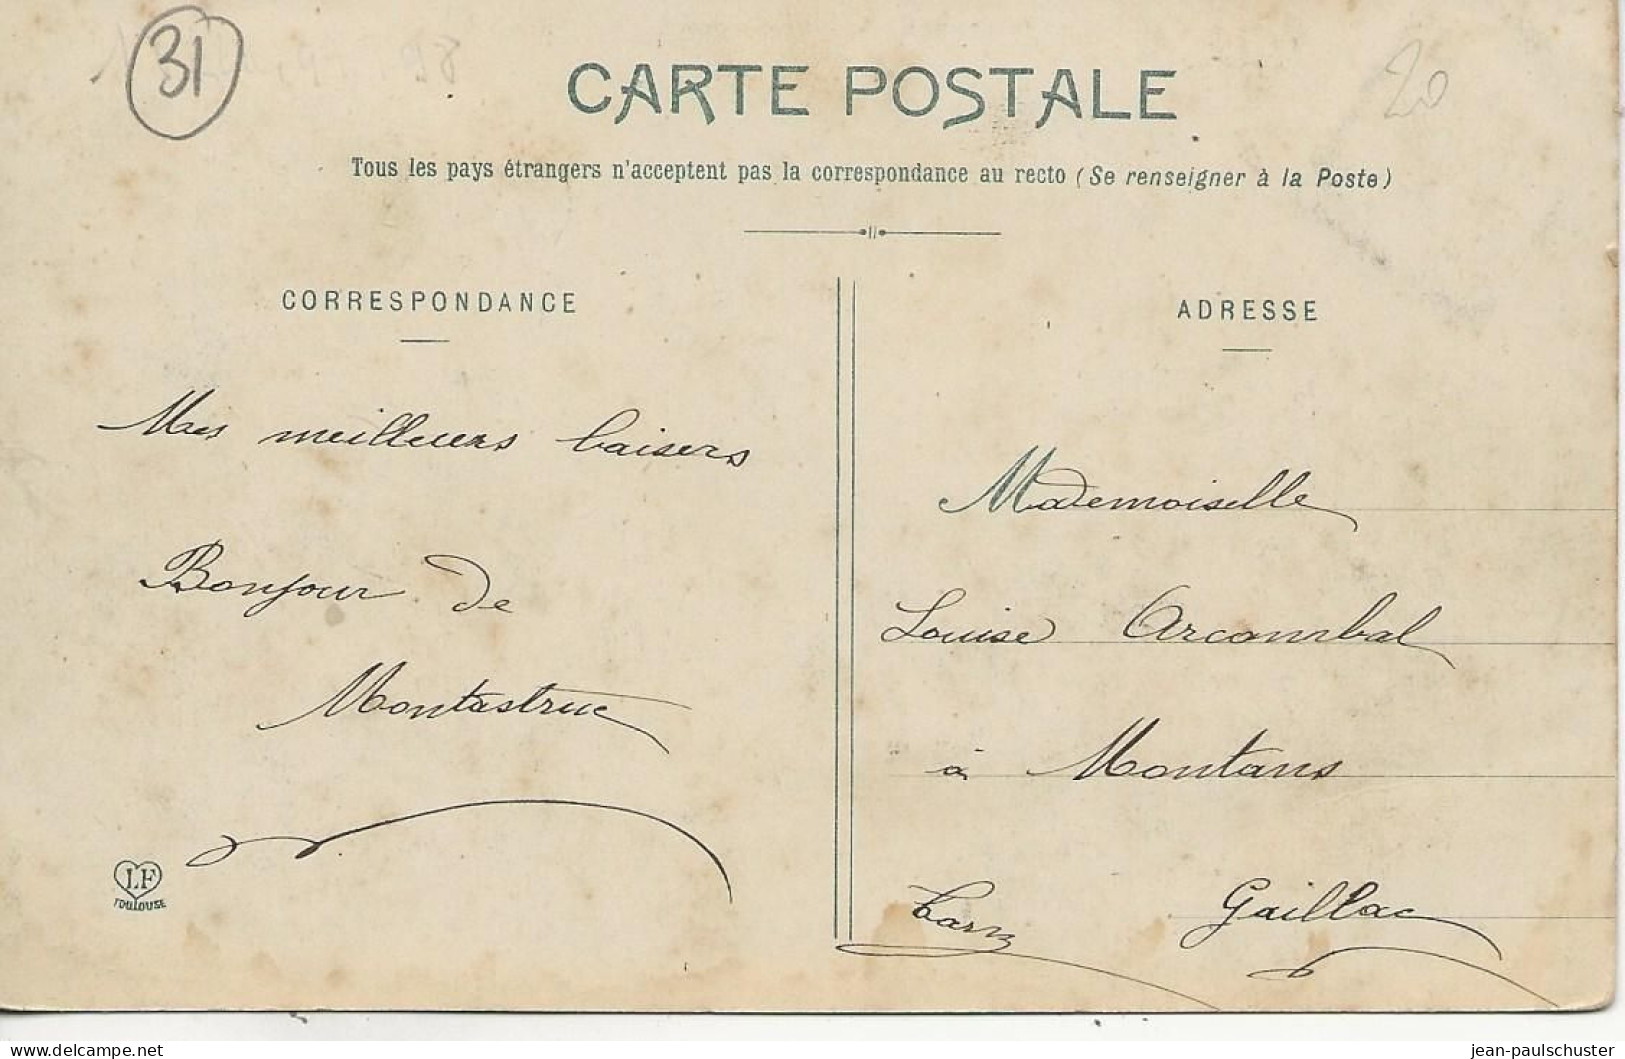 31
20
CARTE POSTALE
Tous les pays étrangers n'acceptent pas la correspondance au recto (Se renseigner à la Poste)
CORRESPONDANCE
Mes meilleurs baisers
Bonjour de
Montastruc
LF
TOULOUSE
ADRESSE
Mademoiselle
Louise Arcambal
à Montans
Tarn Gaillac
www.delcampe.net
jean-paulschuster